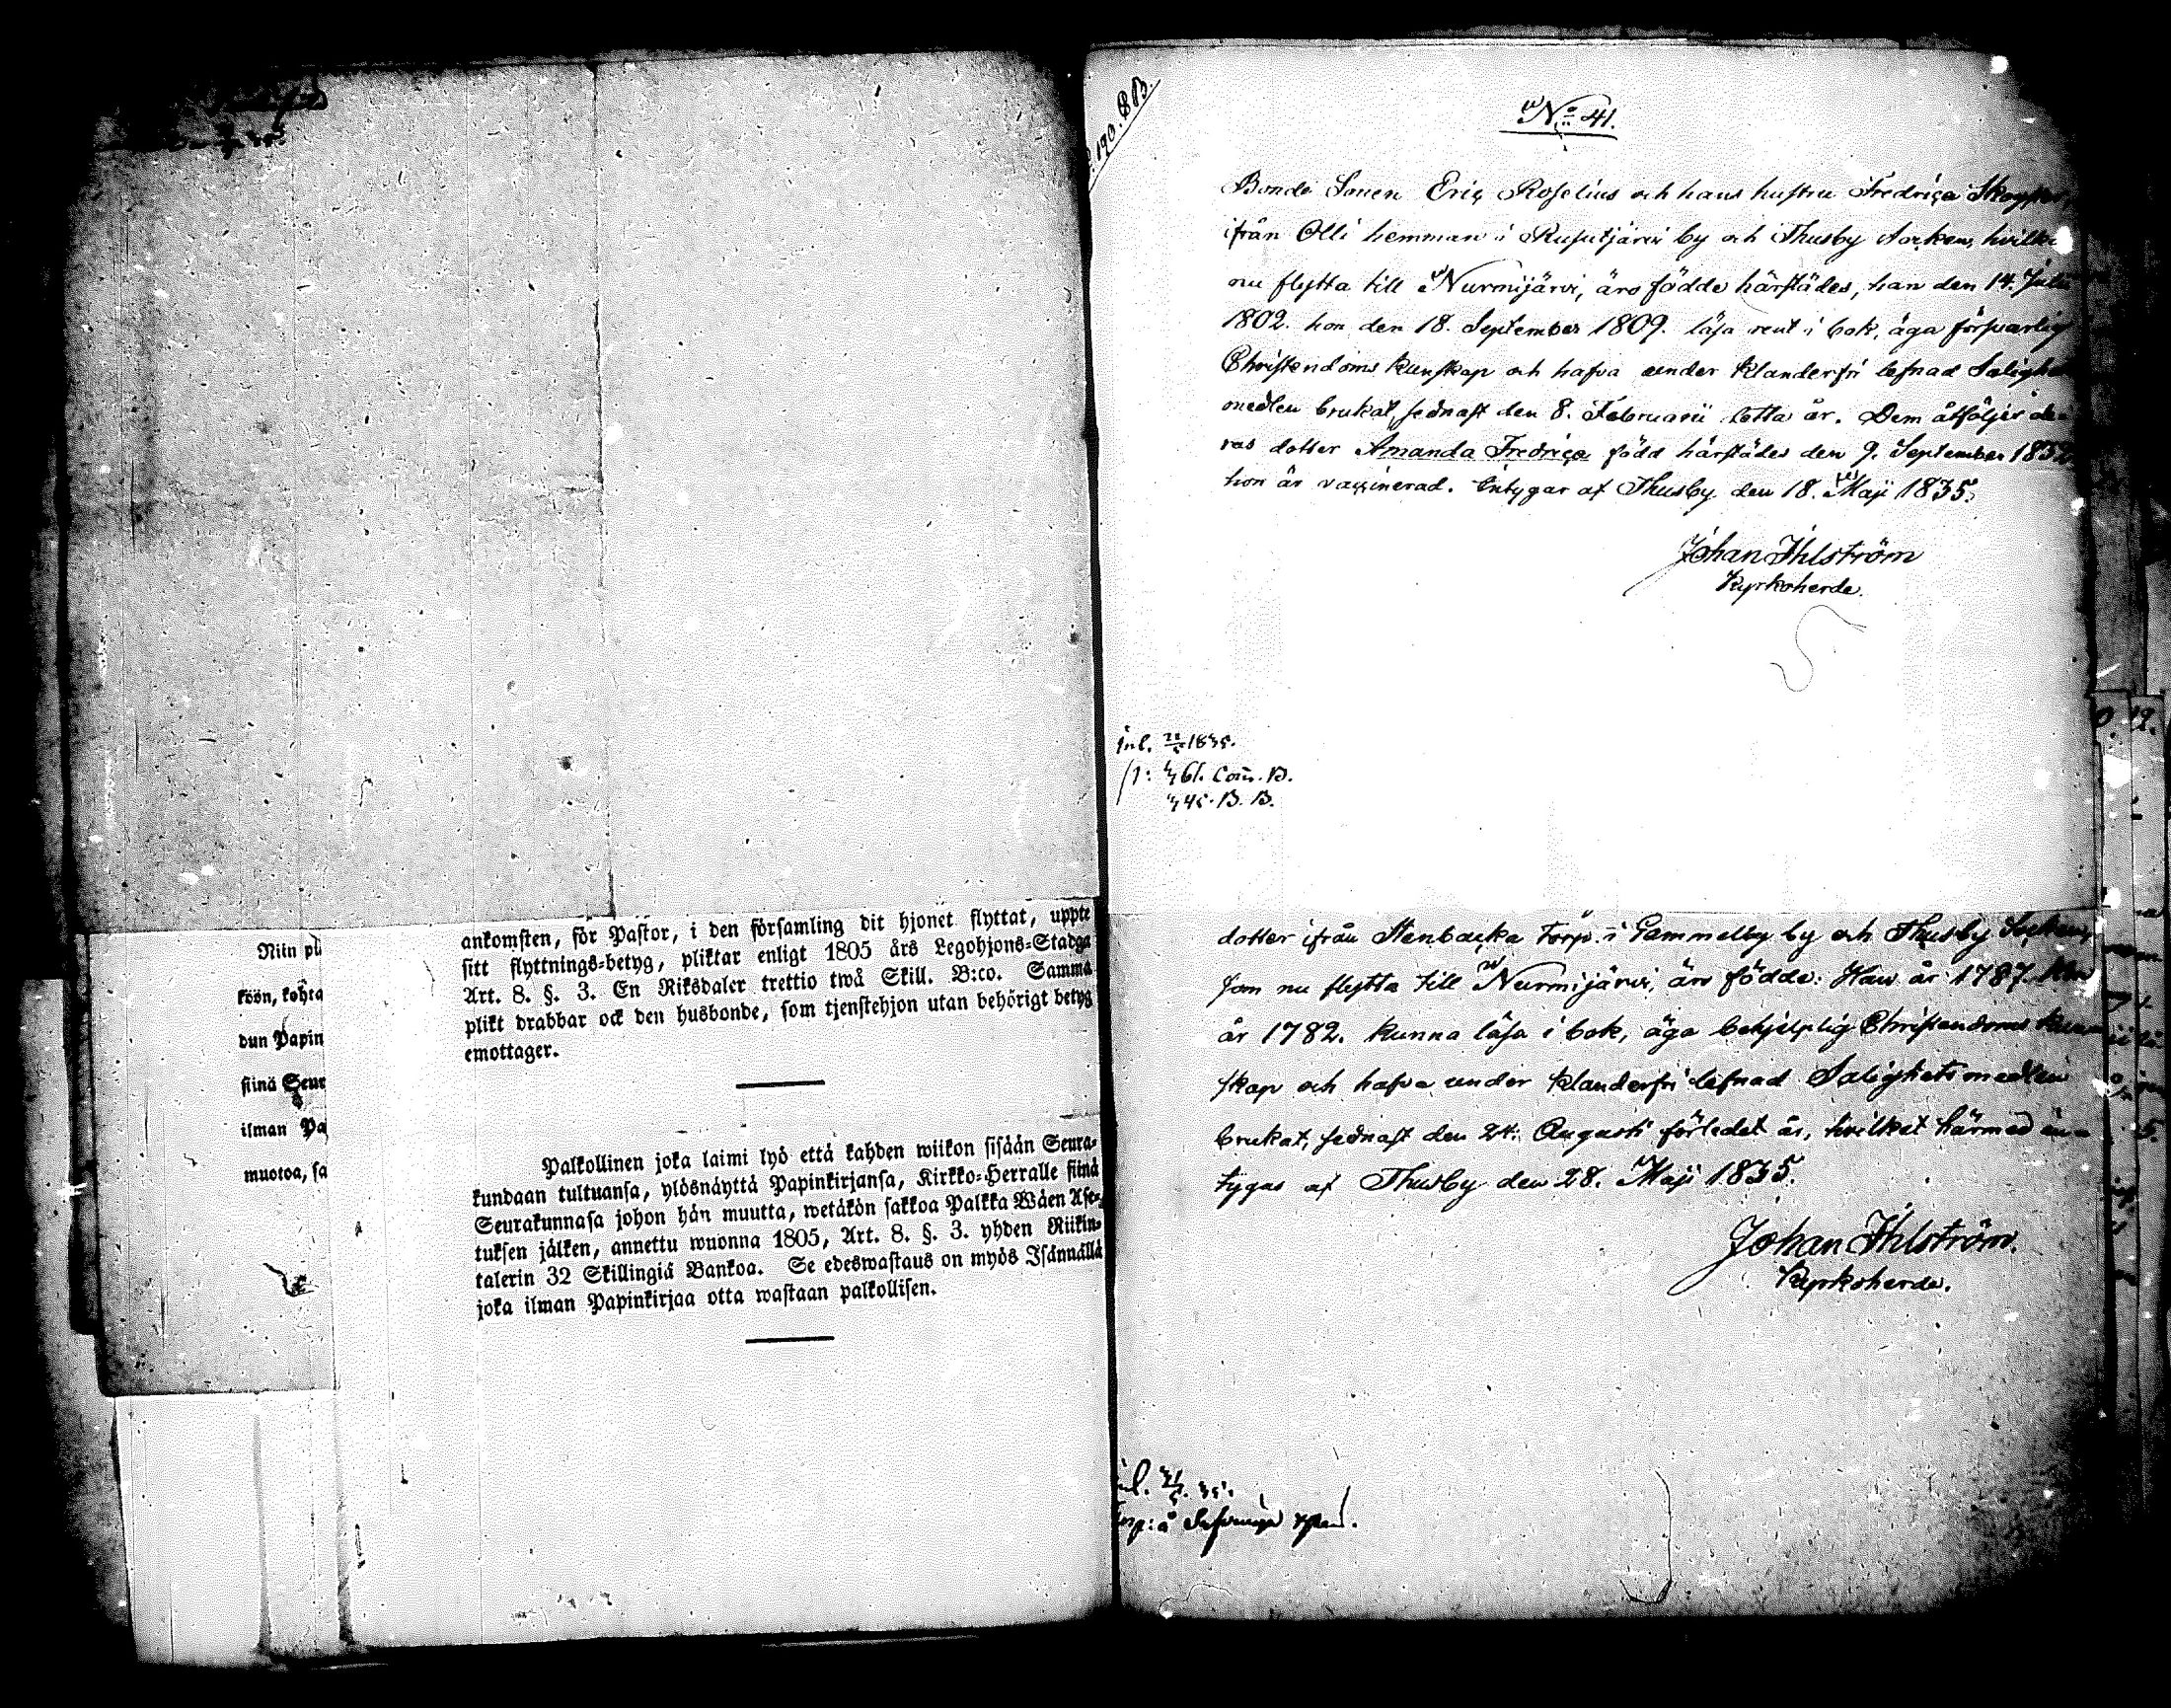 Niin pi
köön, kohta
dun Papin
siinä Seur
ilman Pa
muotoa, sa
ankomsten, för Pastor, i den församling dit hjonet flyttat, uppte
sitt flyttnings-betyg, pliktar enligt 1805 års Legohjons-Stadga
Art. 8. §. 3. En Riksdaler trettio twå Skill. B:co. Samma
plikt drabbar ock den husbonde, som tjenstehjon utan behörigt betyg
emottager.
Palkollinen joka laimi lyö että kahden wiikon sisään Seura-
kundaan tultuansa, ylösnäyttä Papinkirjansa, Kirkko-Herralle siinä
Seurakunnasa johon hän muutta, wetäkön sakkoa Palkka Wäen Ase-
tuksen jälken, annettu wuonna 1805, Art. 8. §. 3. yhden Riikin-
talerin 32 Skillingiä Bankoa. Se edeswastaus on myös Isännällä
joka ilman Papinkirjaa otta wastaan palkollisen.
190. B.B.
No 41.
Bonde Sonen Eric Roselius och hans hustru Fredrica
ifrån Olli hemman i Rusutjärvi by och Thusby Socken, hvilka
nu flytta till Nurmijärvi, äro födde härstädes, han den 14. Julii
1802. hon den 18. September 1809. läsa rent i bok, äga försvarlig
Christendoms kunskap och hafva under klanderfri lefnad Salighets
medlen brukat, sednast den 8. Februarii detta år. Dem åtföljer de-
ras dotter Amanda Fredrica född härstädes den 9. September
hon är vaccinerad. Intygar af Thusby den 18. Maji 1835.
Johan Ihlström
Kyrkoherde.
inl. 1835.
61. Com. B.
45. B. B.
dotter ifrån Stenbacka Torp i Gammelby by och Thusby Socken,
som nu flytta till Nurmijärvi, äro födde: Han år 1787. Hon
år 1782. kunna läsa i bok, äga behjelplig Christendoms kun-
skap och hafva under klanderfri lefnad Salighetsmedlen
brukat, sednast den 24. Augusti förledet år, hvilket härmed in-
tygas af Thusby den 28. Maji 1835.
Johan Ihlström.
Kyrkoherde.